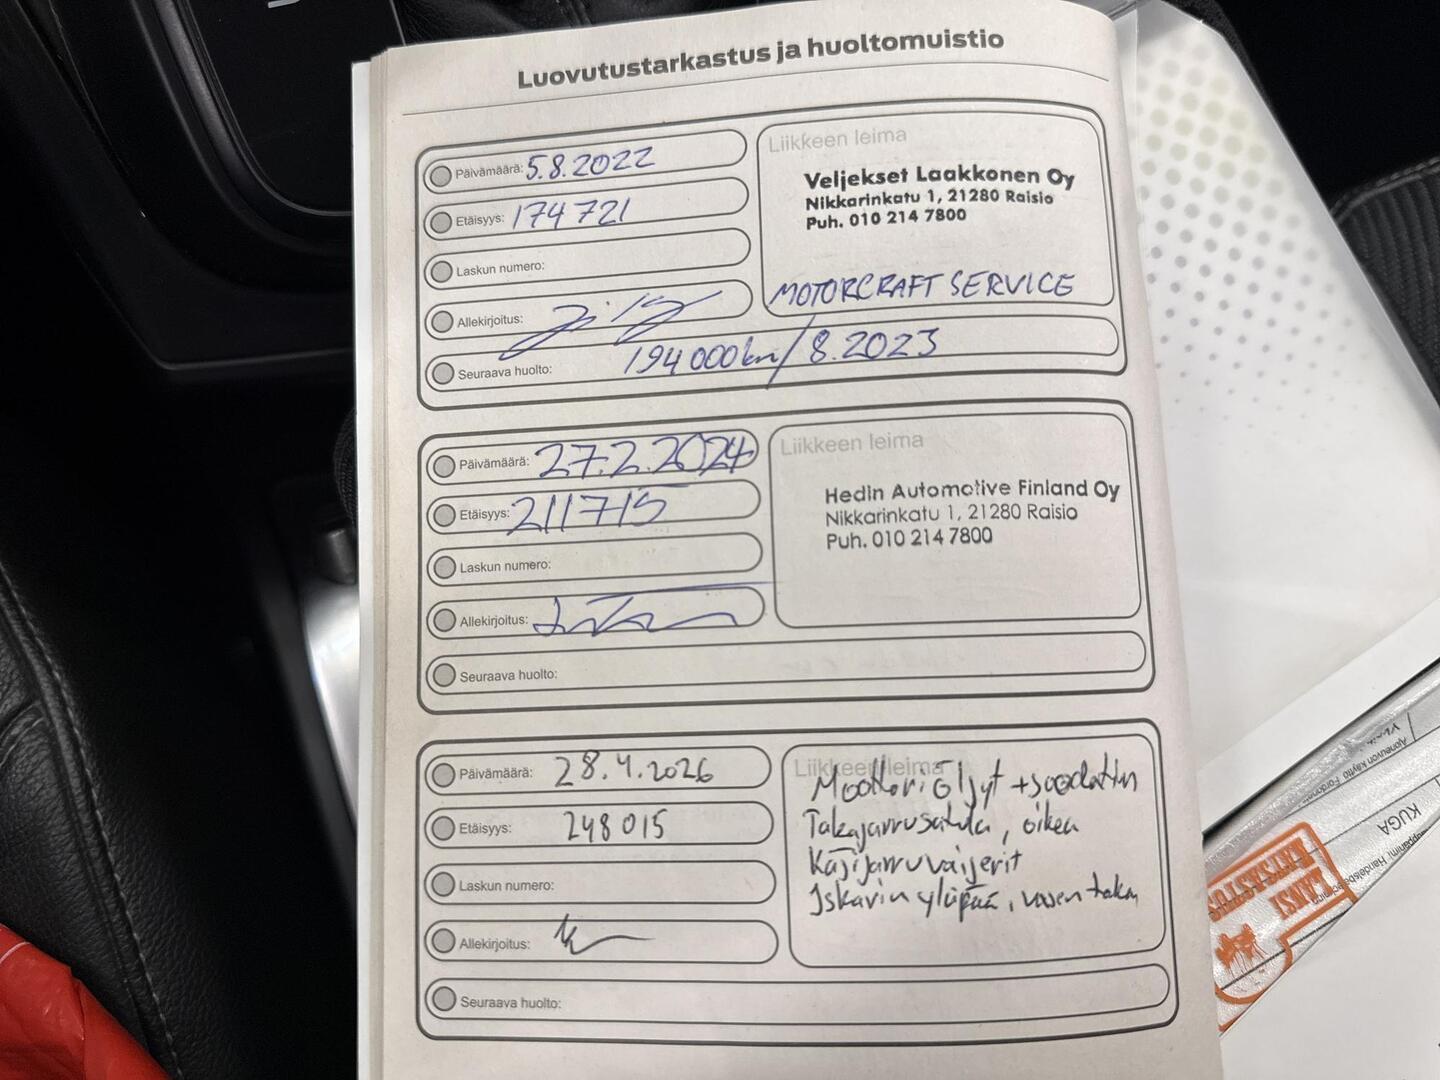 Luovutustarkastus ja huoltomuistio
Päivämäärä: 5.8.2022
Etäisyys: 174 721
Laskun numero:
Allekirjoitus:
Seuraava huolto: 194 000 km / 8.2023
Liikkeen leima
Veljekset Laakkonen Oy
Nikkarinkatu 1, 21280 Raisio
Puh. 010 214 7800
MOTORCRAFT SERVICE
Päivämäärä: 27.2.2024
Etäisyys: 211715
Laskun numero:
Allekirjoitus:
Seuraava huolto:
Liikkeen leima
Hedin Automotive Finland Oy
Nikkarinkatu 1, 21280 Raisio
Puh. 010 214 7800
Päivämäärä: 28.4.2026
Etäisyys: 248 015
Laskun numero:
Allekirjoitus:
Seuraava huolto:
Liikkeen leima
Moottoriöljyt + suodatin
Takajarrusatula, oikea
Käsijarruvaijerit
Iskarin yläpää, vasen taka
Ajoneuvon käyttö
KUGA
LÄNSI
KATSASTUS